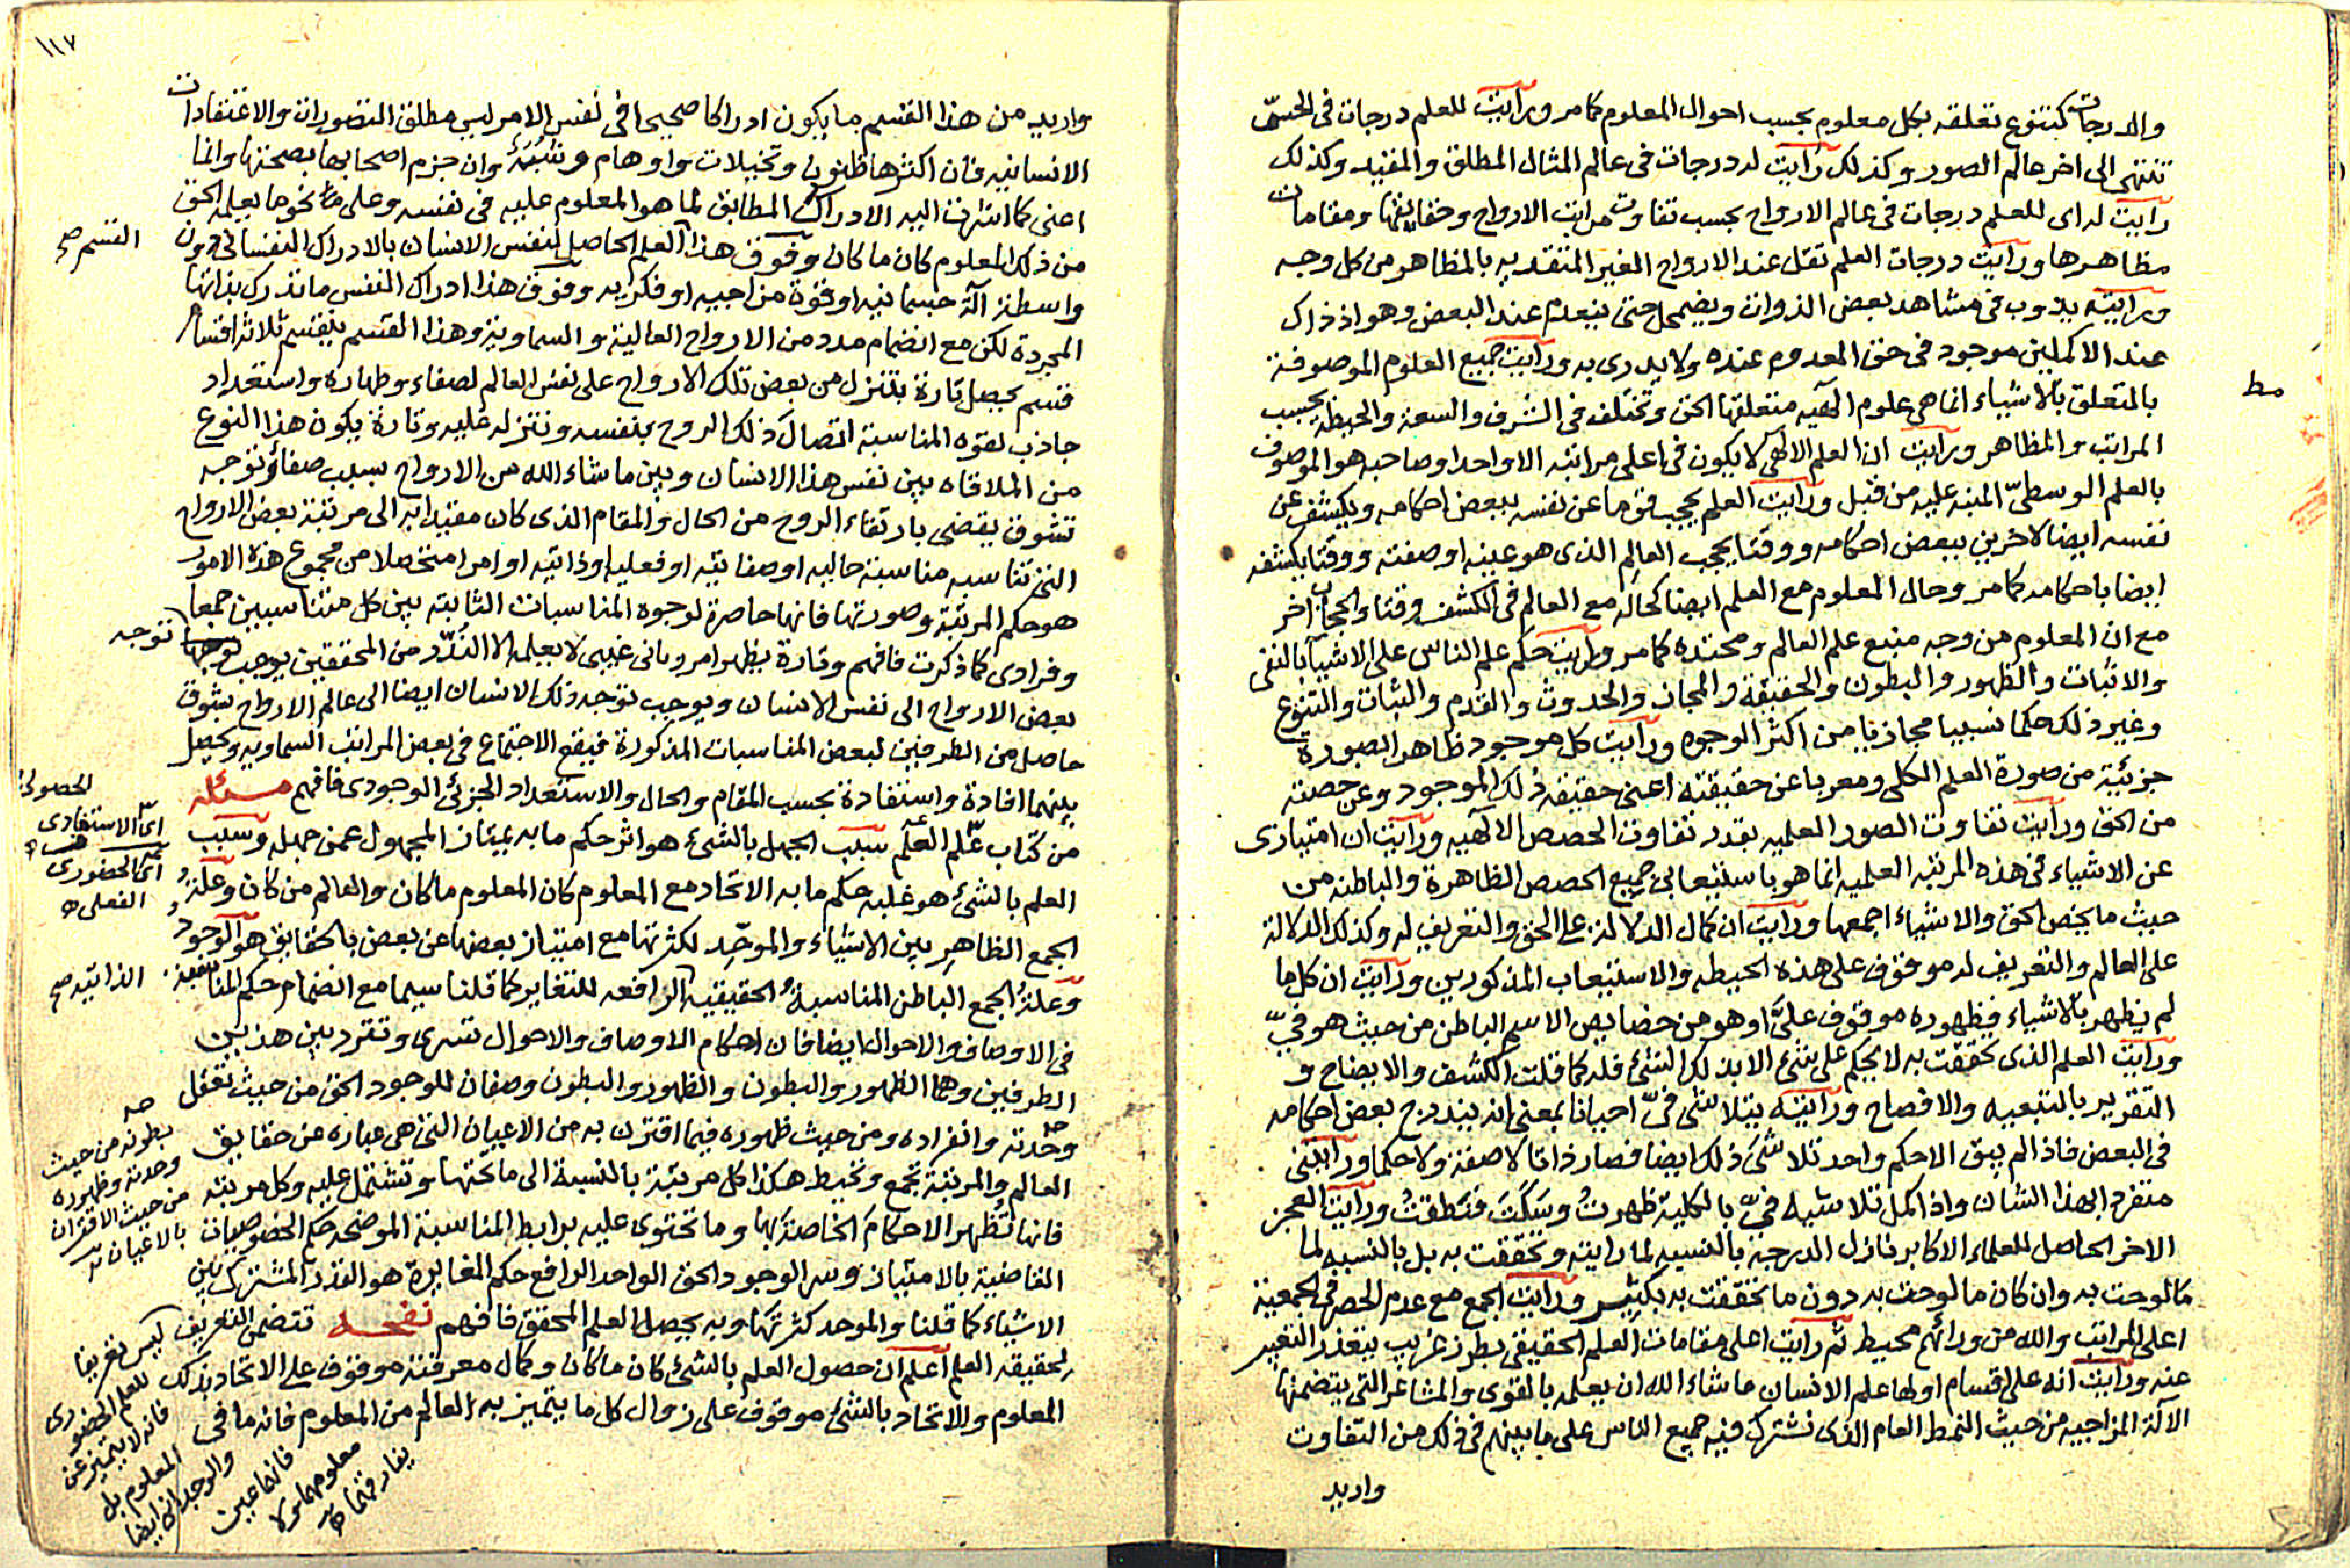 والدرجات كتنوع تعلقه بكل معلوم بحسب احوال المعلوم كما مر ورايت للعلم درجات فى الحسّ
تنتهى الى اخر عالم الصور وكذلك رأيت له درجات فى عالم المثال المطلق والمقيد وكذلك
رايت له اى للعلم درجات فى عالم الارواح بحسب تفاوت مراتب الارواح وحقايقها ومقامات
مظاهرها ورايت درجات العلم تقل عند الارواح الغير المتقيديه بالمظاهر من كل وجه
ورايته يذوب فى مشاهد بعض الذوات ويضمحل حتى ينعدم عند البعض وهو اذ ذاك
عند الاكملين موجود فى حق المعدوم عنده ولا يدرى به ورايت جميع العلوم الموصوفة
بالمتعلق بالاشياء انما هى علوم الهيه متعلقها الحق وتختلف فى الشرف والسعة والحيطة بحسب
المراتب والمظاهر ورايت ان العلم الالهى لا يكون فى اعلى مراتبه الا واحدا وصاحبه هو الموصوف
بالعلم الوسطىّ المنبه عليه من قبل ورايت العلم يحجب قوما عن نفسه ببعض احكامه ويكشف عن
نفسه ايضا لاخرين ببعض احكامه ووقتا يحجب العالِم الذى هو عينه او صفته ووقتا يكشفه
ايضا باحكامه كما مر وحال المعلوم مع العلم ايضا كحاله مع العالم فى الكشف وقتا والحجاب اخر
مع ان المعلوم من وجه منبع علم العالم ومحتده كما مر ورايت حكم علم الناس على الاشيآ بالنفى
والاثبات والظهور والبطون والحقيقة والمجاز والحدوث والقدم والثبات والتنوع
وغير ذلك حكما نسبيا مجازيا من اكثر الوجوه ورايت كل موجود ظاهر الصورة
جزئية من صورة العلم الكلى ومعربا عن حقيقته اعنى حقيقة ذلك الموجود وعن حصته
من الحق ورايت تفاوت الصور العلميه بقدر تفاوت الحصص الالهيه ورايت ان امتيازى
عن الاشياء فى هذه المرتبه العلميه انما هو باستيعابى جميع الحصص الظاهرة والباطنه من
حيث ما يخص الحق والاشياء اجمعها ورايت ان كمال الدلالة على الحق والتعريف له وكذلك الدلالة
على العالم والتعريف له موقوف على هذه الحيطه والاستيعاب المذكورين ورايت ان كل ما
لم يظهر بالاشياء فظهوره موقوف علىَّ او هو من خصايص الاسم الباطن من حيث هو فىّ
ورايت العلم الذى تحققت به لا يحكم على شئ الا بذلك الشئ فله كما قلت الكشف والايضاح و
التقرير بالتنبيه والافصاح ورايته يتلاشى فىّ احيانا بمعنى انه يندرج بعض احكامه
فى البعض فاذا لم يبق الا حكم واحد تلاشى ذلك ايضا فصار ذاتا لا صفة ولا حكما ورايتنى
متفردا بهذا الشان واذا كمل تلاشيه فىّ بالكلية ظهرتُ وسَكَتَ فنطقتُ ورايت العجز
الاخر الحاصل للعلماء الاكابر نازل الدرجة بالنسبه لما رايته وتحققت به بل بالنسبه لما
ما لوحت به وان كان ما لوحت به دون ما تحققت به بكثير ورايت الجمع مع عدم الحصر فى الجمعية
اعلى المراتب والله من ورائهم محيط ثم رايت اعلى مقامات العلم الحقيقى بطرز غريب يتعذر التعبير
عنه ورايت انه على اقسام اولها علم الانسان ما شاء الله ان يعلمه بالقوى والمشاعر التى يتضمنها
الآلة المزاجيه من حيث النمط العام الذى تشترك فيه جميع الناس على ما بينهم فى ذلك من التفاوت
واريد
مط
١١٧
واريد من هذا القسم ما يكون ادراكا صحيحا فى نفس الامر ليس مطلق التصورات والاعتقادات
الانسانيه فان اكثرها ظنون وتخيلات واوهام وشُبَهٌ وان جزم اصحابها بصحتها وانما
اعنى كما اشرت اليه الادراك المطابق لما هو المعلوم عليه فى نفسه وعلى نحو ما يعلمه الحق
من ذلك المعلوم كان ما كان وفوق هذا العلم الحاصل لنفس الانسان بالادراك النفسانى دون
واسطة آلة جسمانيه او قوة مزاجيه او فكريه وفوق هذا ادراك النفس ما تدرك بذاتها
المجردة لكن مع انضمام مدد من الارواح العالية والسماوية وهذا القسم ينقسم ثلاثة اقسام
قسم يحصل تارة بتنزل من بعض تلك الارواح على نفس العالم لصفاء وطهارة واستعداد
جاذب لقوه المناسبة اتصال ذلك الروح بنفسه وتنزله عليه وتارة يكون هذا النوع
من الملاقاه بين نفس هذا الانسان وبين ما شاء الله من الارواح بسبب صفاء وتوجه
تشوق يقضى بارتقاء الروح من الحال والمقام الذى كان مقيدا به الى مرتبة بعض الارواح
التى تناسبه مناسبة حاليه او صفاتيه او فعليه او ذاتيه او امرا متحصلا من مجموع هذه الامور
هو حكم المرتبة وصورتها فانها حاصرة لوجوه المناسبات الثابته بين كل متناسبين جمعا
وفرادى كما ذكرت فافهم وتارة يظهر امر ربانى غيبى لا يعلمه الا النُدَّر من المحققين يوجب توجه
بعض الارواح الى نفس الانسان ويوجب توجه ذلك الانسان ايضا الى عالم الارواح بشوق
حاصل من الطرفين لبعض المناسبات المذكورة فيقع الاجتماع فى بعض المراتب السماويه ويحصل
بينهما افادة واستفادة بحسب المقام والحال والاستعداد الجزئى الوجودى فافهم مسئله
من كتاب علم العلم سبب الجهل بالشئ هو اثر حكم ما به يمتاز المجهول عمن جهله وسبب
العلم بالشئ هو غلبه حكم ما به الاتحاد مع المعلوم كان المعلوم ما كان والعالم من كان وعلة
الجمع الظاهر بين الاشياء والموحّد لكثرتها مع امتياز بعضها عن بعض بالحقايق هو الوجود
وعلة الجمع الباطن المناسبة الحقيقيه الرافعه للتغاير كما قلنا سيما مع انضمام حكم المناسبة
فى الاوصاف والاحوال ايضا فان احكام الاوصاف والاحوال تسرى وتتردد بين هذين
الطرفين وهما الظهور والبطون والظهور والبطون وصفان للوجود الحق من حيث تعقل
وحدته وانفراده ومن حيث ظهوره فيما اقترن به من الاعيان التى هى عباره عن حقايق
العالم والمرتبة تجمع وتحيط هكذا كل مرتبة بالنسبة الى ما تحتها وتشتمل عليه وكل مرتبه
فانها تُظهر الاحكام الخاصة بها وما تحتوى عليه برابط المناسبة الموضحه حكم الخصوصيات
القاضية بالامتياز وسر الوجود الحق الواحد الرافع حكم المغايرة هو القدر المشترك بين
الاشياء كما قلنا والموحد كثرتها وبه يحصل العلم المحقق فافهم نفحه تتضمن التعريف
لحقيقه العلم اعلم ان حصول العلم بالشئ كان ما كان وكمال معرفته موقوف على الاتحاد بذلك
المعلوم والاتحاد بالشئ موقوف على زوال كل ما يتميز به العالم من المعلوم فانه ما فى
القسم صح
توجه
الحصولى
اى الاستفادى
اى الحضورى
الفعلى
الذاتيه صح
بطونه من حيث
وحدته وظهوره
من حيث الاقتران
بالاعيان
ليس تعريفا
للعلم الحضورى
فانه لا يتميز عن
المعلوم بل
والوجدان ايضا
فانها عين
معلومها ولا
يفارقها